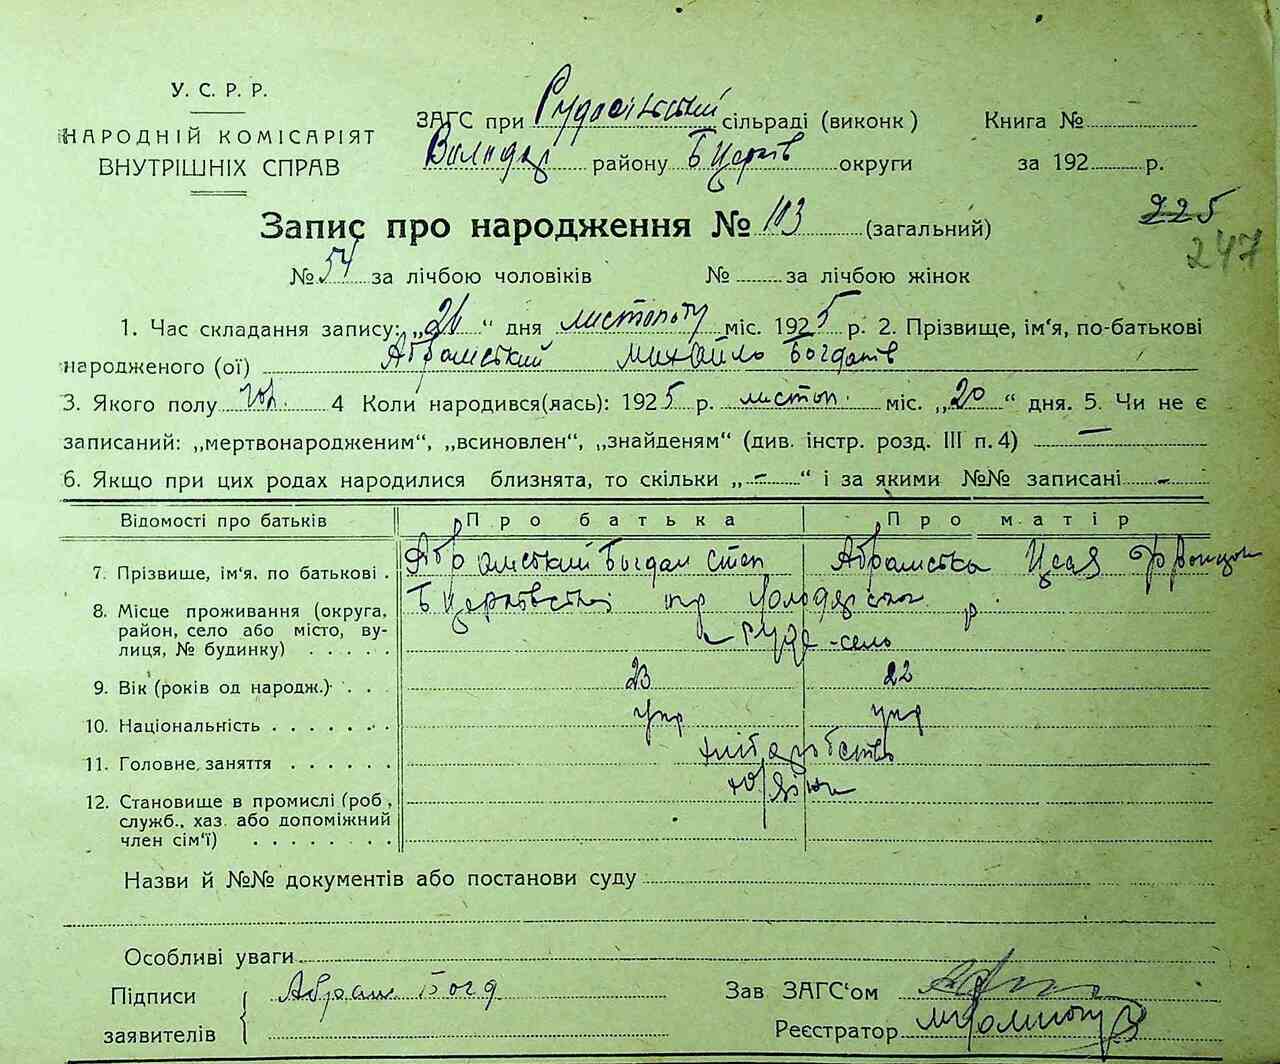 У. С. Р. Р.
НАРОДНІЙ КОМІСАРІЯТ
ВНУТРІШНІХ СПРАВ
ЗАГС при Рудосільській сільраді (виконк)
Володар району Б Церків округи
Книга №
за 192 р.
Запис про народження № 113 (загальний)
225
247
№ 54 за лічбою чоловіків № за лічбою жінок
1. Час складання запису: „26“ дня листопаду міс. 1925 р. 2. Прізвище, ім'я, по-батькові
народженого (ої) Абрамський Михайло Богданів
3. Якого полу чол. 4 Коли народився(лась): 1925 р. листоп. міс. „20“ дня. 5. Чи не є
записаний: „мертвонародженим“, „всиновлен“, „знайденям“ (див. інстр. розд. III п. 4) —
6. Якщо при цих родах народилися близнята, то скільки „–“ і за якими №№ записані –
Відомості про батьків Про батька Про матір
7. Прізвище, ім'я, по батькові . Абрамський Богдан Степ Абрамська Франц
8. Місце проживання (округа, Б Церківської
район, село або місто, ву- Руде-село
лиця, № будинку) . . . . .
9. Вік (років од народж.) . . . 23 22
10. Національність . . . . . . . укр укр
11. Головне заняття . . . . . . хліборобство
12. Становище в промислі (роб.,
служб., хаз. або допоміжний
член сім'ї) . . . . . . . .
Назви й №№ документів або постанови суду
Особливі уваги
Підписи Абрам Богд
заявителів
Зав ЗАГС'ом
Реєстратор